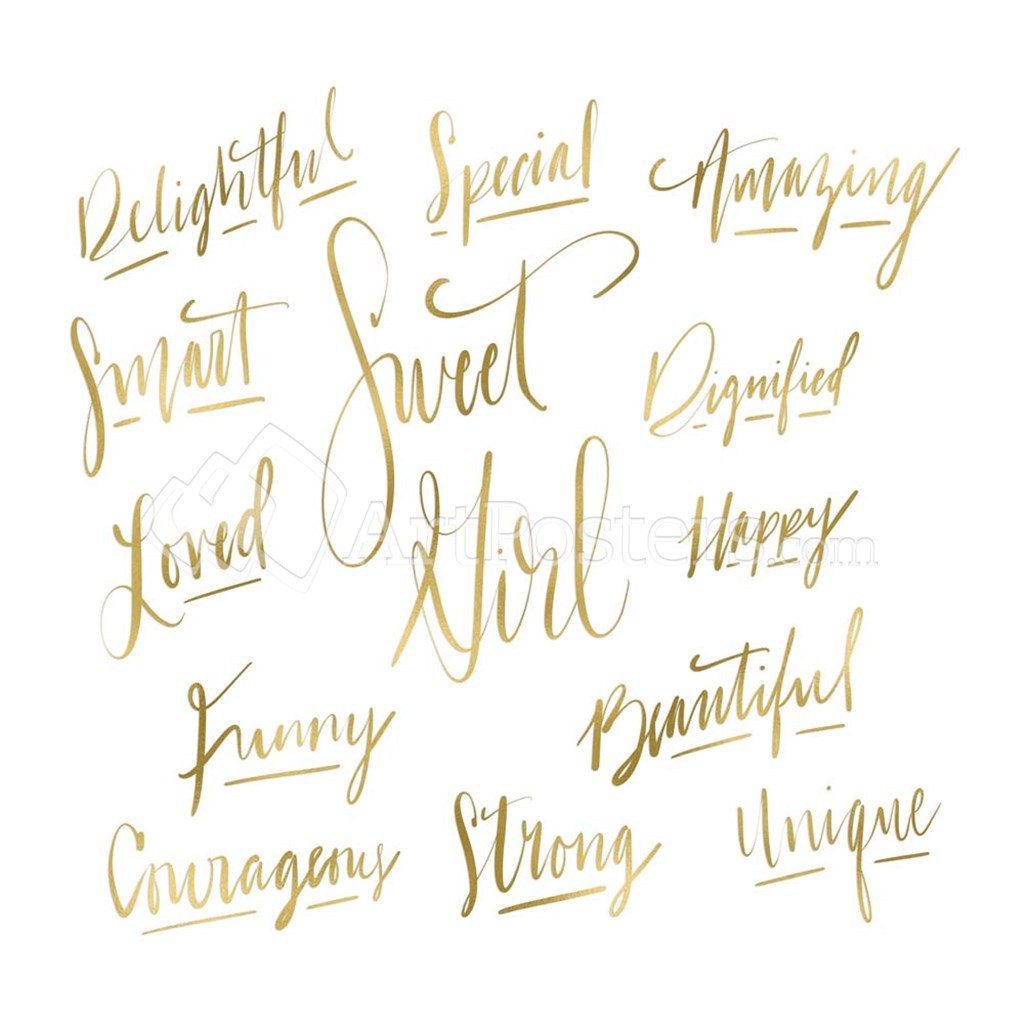 Delightful
Special
Amazing
Smart
Sweet
Girl
Dignified
Loved
ArtPosters.com
Happy
Funny
Beautiful
Courageous
Strong
Unique